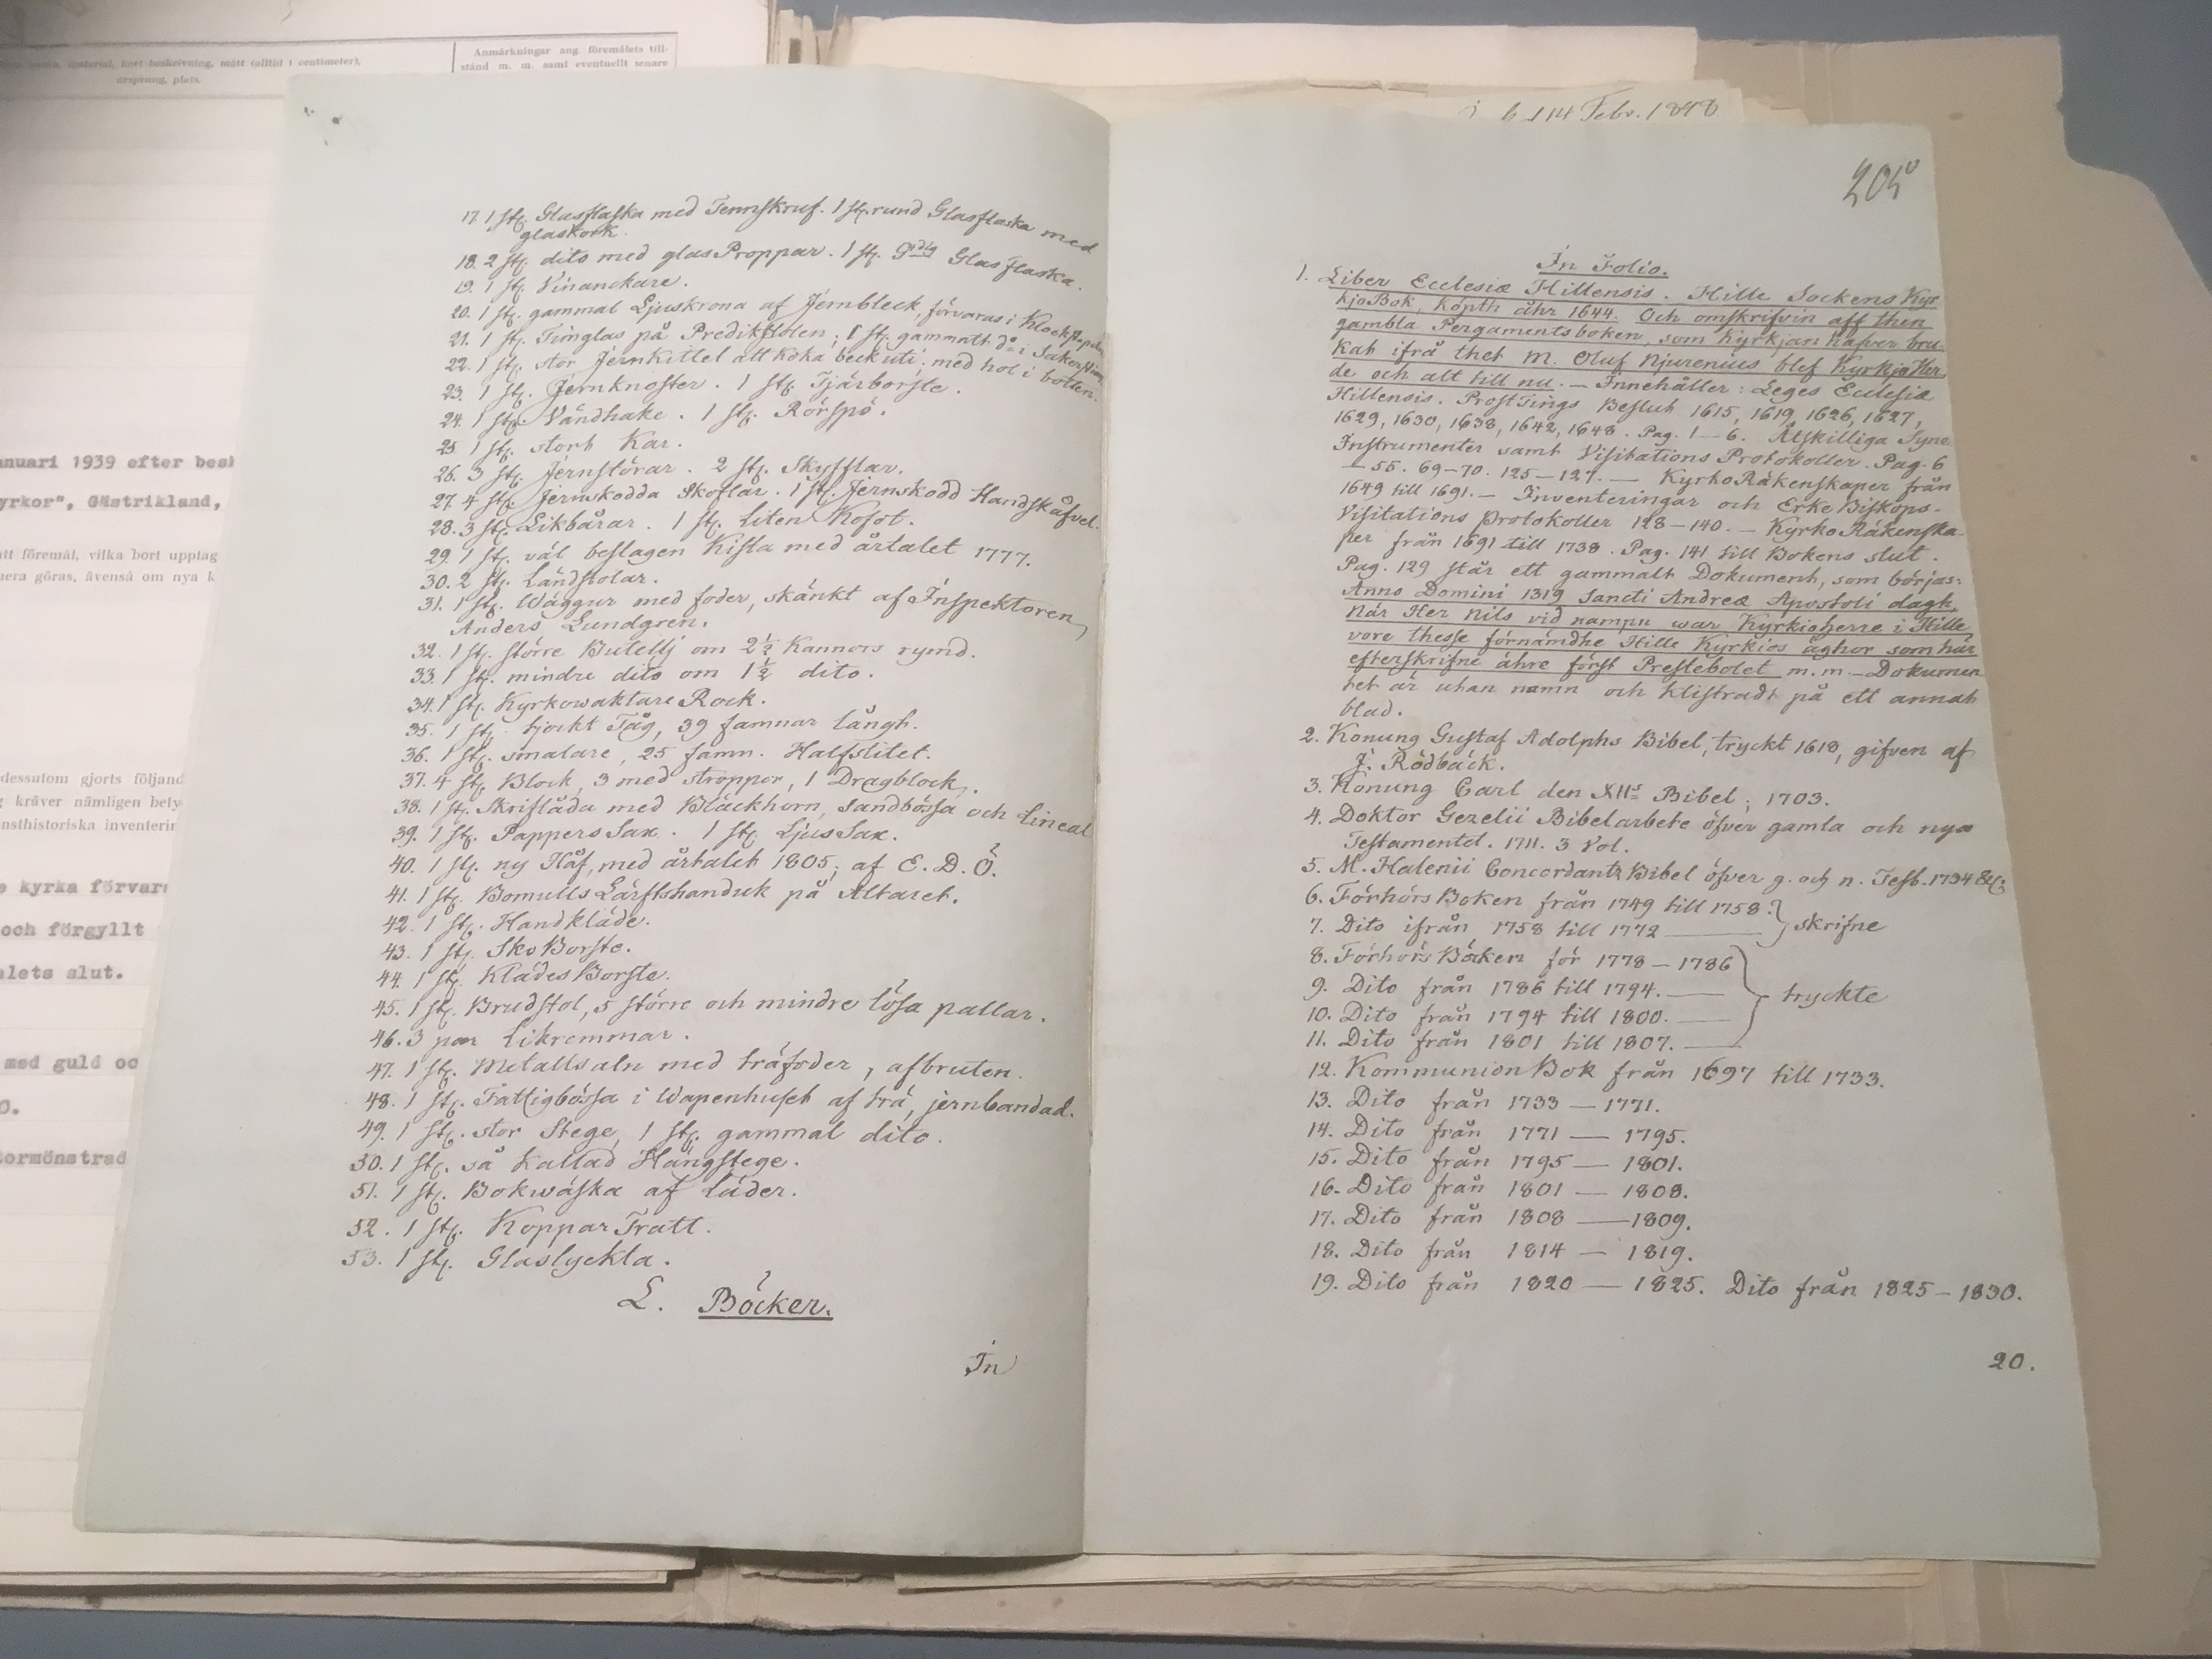 Anmärkningar ang. föremålets till-
stånd m. m. samt eventuellt senare
kort beskrivning, mått (alltid i centimeter),
ursprung, plats.
anuari 1939 efter besk
yrkor", Gästrikland,
tt föremål, vilka bort upptag
nera göras, ävenså om nya k
dessutom gjorts följand
kräver nämligen bety
nsthistoriska inventerin
kyrka förvar
och förgyllt
alets slut.
med guld oc
0.
tormönstrad
14 Febr. 1898
17. 1 st. Glasflaska med Tennskruf. 1 st. rund Glasflaska med
glaskork.
18. 2 st. dito med glasProppar. 1 st. Glasflaska.
19. 1 st. Vinanckare.
20. 1 st. gammal Ljuskrona af Jernbleck, förvaras i Klockstapeln
21. 1 st. Timglas på Predikstolen; 1 st. gammalt do i Sakerstian
22. 1 st. stor Jernkittel att koka beck uti, med hol i botten.
23. 1 st. Jernknoster. 1 st. Tjärborste.
24. 1 st. Vändhake. 1 st. Rörspö.
25. 1 st. stort Kar.
26. 3 st. Jernstörar. 2 st. Skyfflar.
27. 4 st. Jernskodda Skoflar. 1 st. Jernskodd Handskåfvel.
28. 3 st. Likbårar. 1 st. liten Kofot.
29. 1 st. väl beslagen Kista med årtalet 1777.
30. 2 st. Ländstolar.
31. 1 st. Wäggur med foder, skänkt af Inspektoren
Anders Lundgren.
32. 1 st. större Butellj om 2½ Kannors rymd.
33. 1 st. mindre dito om 1½ dito.
34. 1 st. Kyrkowaktare Rock.
35. 1 st. tjockt Tåg, 39 famnar långt.
36. 1 st. smalare, 25 famn. Halfslitet.
37. 4 st. Block, 3 med stroppor, 1 Dragblock.
38. 1 st. Skriflåda med Bläckhorn, sandbössa och Lineal
39. 1 st. PappersSax. 1 st. LjusSax.
40. 1 st. ny Håf, med årtalet 1805; af E. D. Ö.
41. 1 st. BomullsLärftshanduk på Altaret.
42. 1 st. Handkläde.
43. 1 st. SkoBorste.
44. 1 st. KlädesBorste.
45. 1 st. Brudstol, 5 större och mindre lösa pallar.
46. 3 par Likremmar.
47. 1 st. Metallsaln med träfoder, afbruten.
48. 1 st. Fattigbössa i Wapenhuset af trä, jernbandad.
49. 1 st. stor Stege, 1 st. gammal dito.
50. 1 st. så kallad Hängstege.
51. 1 st. Bokwäska af läder.
52. 1 st. Koppar Tratt.
53. 1 st. Glaslyckta.
L. Böcker.
In
205
In Folio.
1. Liber Ecclesiæ Hillensis. Hille Sockens Kyr
kjoBok, köpth åhr 1644. Och omskrifvin aff then
gambla Pergamentsboken, som Kyrkjan hafver bru
kat ifrå thet M. Oluf Njurenius blef KyrkjoHer
de och alt till nu. — Innehåller: Leges Ecclesiæ
Hillensis. ProstTings Beslut 1615, 1619, 1626, 1627,
1629, 1630, 1638, 1642, 1648. Pag. 1—6. Åtskilliga Syne
Instrumenter samt Visitations Protokoller. Pag. 6
—55. 69—70. 125—127. — KyrkoRäkenskaper från
1649 till 1691. — Inventeringar och Erke Biskops-
Visitations Protokoller 128—140. — KyrkoRäkenska-
per från 1691 till 1738. Pag. 141 till Bokens slut.
Pag. 129 står ett gammalt Dokument, som börjas:
Anno Domini 1319 Sancti Andreæ Apostoli dagh,
när Her Nils vid nampn war Kyrkioherre i Hille,
vore thesse förnämdhe Hille Kyrkios äghor som här
efterskrifne åhre först Prestebolet m.m. — Dokumen
tet är utan namn och klistradt på ett annat
blad.
2. Konung Gustaf Adolphs Bibel, tryckt 1618, gifven af
J. Rödbäck.
3. Konung Carl den XIIs Bibel; 1703.
4. Doktor Gezelii Bibelarbete öfver gamla och nya
Testamentet. 1711. 3 Vol.
5. M. Halenii Concordants Bibel öfver g. och n. Test. 1734 &c.
6. FörhörsBoken från 1749 till 1758.
7. Dito ifrån 1758 till 1772 — } skrifne
8. FörhörsBöcker för 1778 — 1786
9. Dito från 1786 till 1794. — } tryckte
10. Dito från 1794 till 1800. —
11. Dito från 1801 till 1807. —
12. KommunionBok från 1697 till 1733.
13. Dito från 1733 — 1771.
14. Dito från 1771 — 1795.
15. Dito från 1795 — 1801.
16. Dito från 1801 — 1808.
17. Dito från 1808 — 1809.
18. Dito från 1814 — 1819.
19. Dito från 1820 — 1825. Dito från 1825 — 1830.
20.